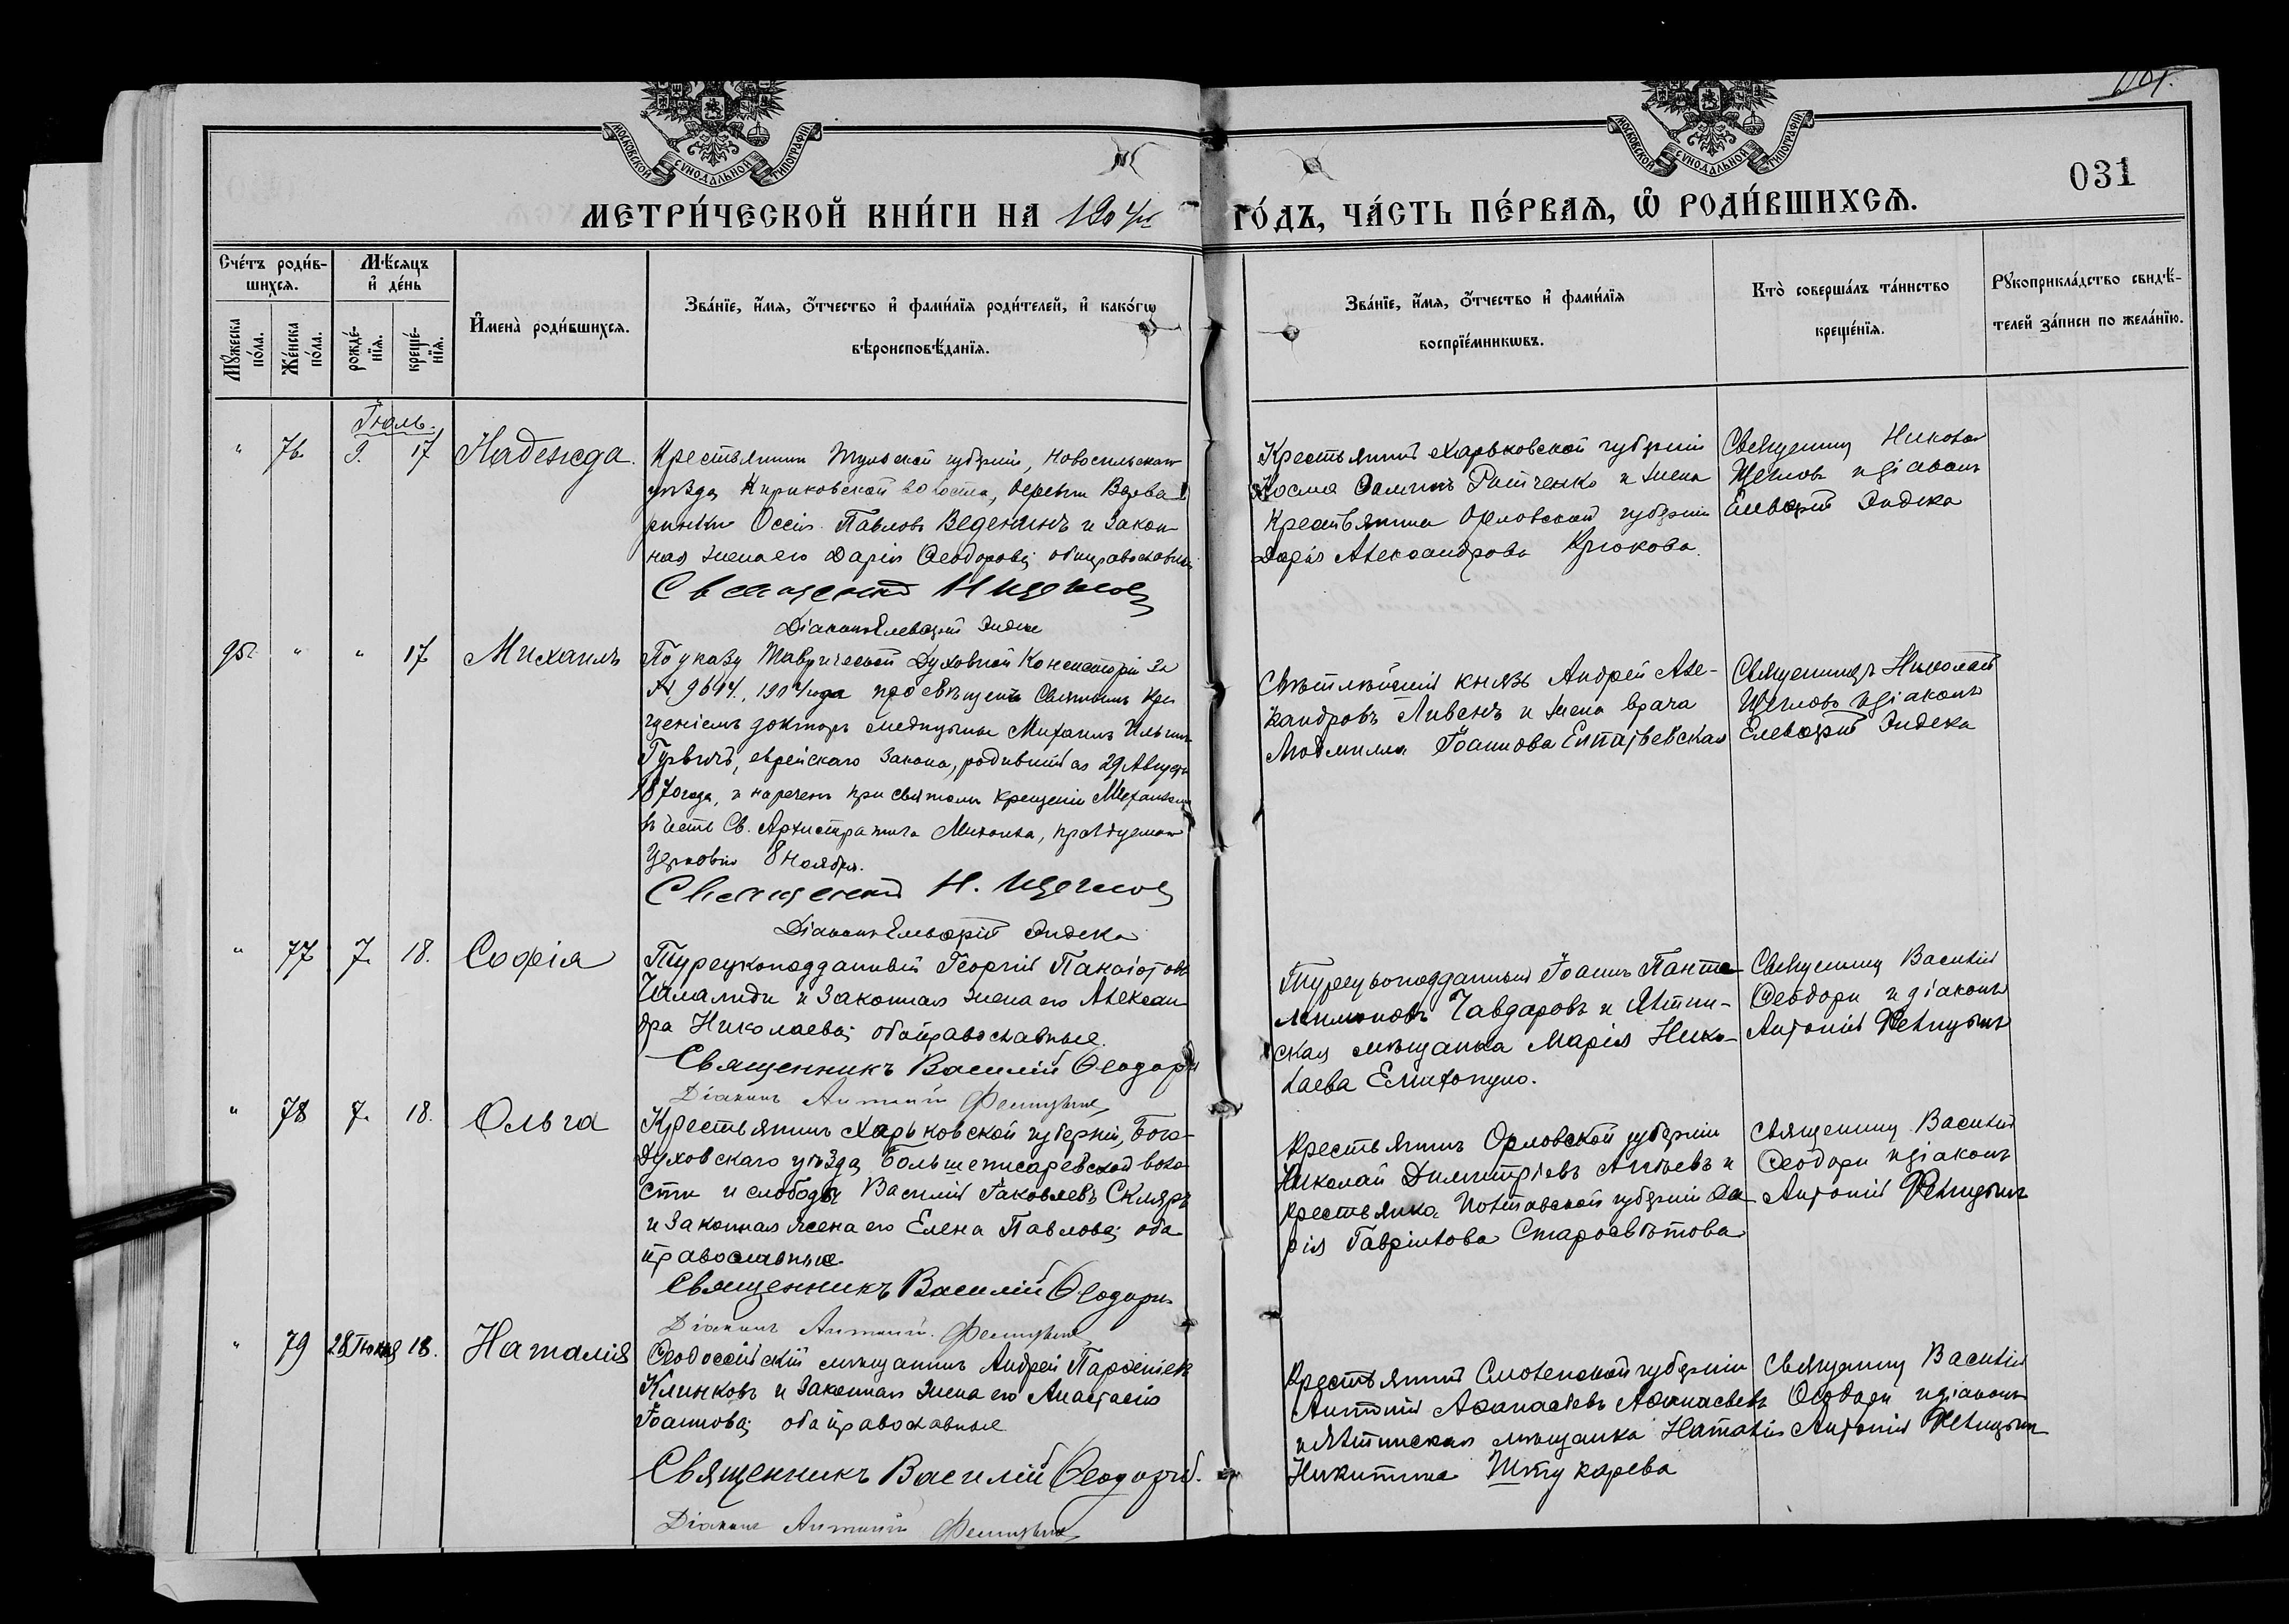 МОСКОВСКОЙ СѴНОДАЛЬНОЙ ТИПОГРАФІИ
МОСКОВСКОЙ СѴНОДАЛЬНОЙ ТИПОГРАФІИ
031
МЕТРИ́ЧЕСКОЙ КНИ́ГИ НА 1904 ГО́ДЪ, ЧА́СТЬ ПЕ́РВАѦ, Ѡ РОДИ́ВШИХСѦ.
Сче́тъ роди́в-
шихсѧ.
Мꙋ́жеска по́ла.
Же́нска по́ла.
Мѣ́сѧцъ
и҆ де́нь
рожде́-
нїѧ.
креще́-
нїѧ.
И҆мена̀ роди́вшихсѧ.
Зва́нїе, и҆́мѧ, ѻ҆́тчество и҆ фами́лїѧ роди́телей, и҆ како́гѡ
вѣроисповѣ́данїѧ.
Зва́нїе, и҆́мѧ, ѻ҆́тчество и҆ фами́лїѧ
воспрїе́мникѡвъ.
Кто̀ соверша́лъ та́инство
креще́нїѧ.
Рꙋкоприкла́дство свидѣ́-
телей за́писи по жела́нїю.
Іюль.
" 76 9. 17 Надежда.
Крестьянинъ Тульской губерніи, Новосильскаго
уѣзда, Кириковской волости, деревни
Павловъ Веденинъ и закон-
ная жена его Дарія Ѳеодорова; оба православные
Священникъ Н Щегловъ
Діаконъ Елевѳерій Эндека
Крестьянинъ Харьковской губерніи
Косма и жена
Крестьянина Орловской губерніи
Дарія Александрова Крюкова.
Священникъ Николай
Щегловъ и діаконъ
Елевѳерій Эндека
95. " " 17 Михаилъ
По указу Таврической Духовной Консисторіи за
№ 9614, 1904 года просвѣщенъ Святымъ Кре-
щеніемъ докторъ медицины Михаилъ Ильинъ
Гурвичъ, еврейскаго закона, родившійся 29 Августа
1870 года, и нареченъ при святомъ крещеніи Михаиломъ
въ честь Св. Архистратига Михаила, празднуемаго
Церковію 8 ноября.
Священникъ Н. Щегловъ
Діаконъ Елевѳерій Эндека
Свѣтлѣйшій князь Андрей Але-
ксандровъ Ливенъ и жена врача
Людмила Іоаннова Елпатьевская
Священникъ Николай
Щегловъ и діаконъ
Елевѳерій Эндека
" 77 7. 18. Софія
Турецкоподданный Георгій Панаіотовъ
и законная жена его Алексан-
дра Николаева; оба православные.
Священникъ Василій Ѳеодори
Діаконъ Антоній Фелицынъ
Турецкоподданный Іоаннъ Панте-
леимоновъ Чавдаровъ и Ялтин-
ская мѣщанка Марія Нико-
лаева
Священникъ Василій
Ѳеодори и діаконъ
Антоній Фелицынъ
" 78 7. 18. Ольга
Крестьянинъ Харьковской губерніи, Бого-
духовскаго уѣзда, Большеписаревской воло-
сти и слободы Василій Іаковлевъ Скляръ
и законная жена его Елена Павлова; оба
православные.
Священникъ Василій Ѳеодори
Діаконъ Антоній Фелицынъ
Крестьянинъ Орловской губерніи
Николай Димитріевъ и
крестьянка Полтавской губерніи Да-
рія Гавріилова Старосвѣтова
Священникъ Василій
Ѳеодори и діаконъ
Антоній Фелицынъ
" 79 28 Іюня 18. Наталія
Ѳеодосійскій мѣщанинъ Андрей Парѳеніевъ
Клинковъ и законная жена его Анастасія
Іоаннова; оба православные
Священникъ Василій Ѳеодори.
Діаконъ Антоній Фелицынъ
Крестьянинъ Смоленской губерніи
Антоній Аѳанасіевъ Аѳанасьевъ
и Ялтинская мѣщанка Наталія
Никитина Штукарева
Священникъ Василій
Ѳеодори и діаконъ
Антоній Фелицынъ